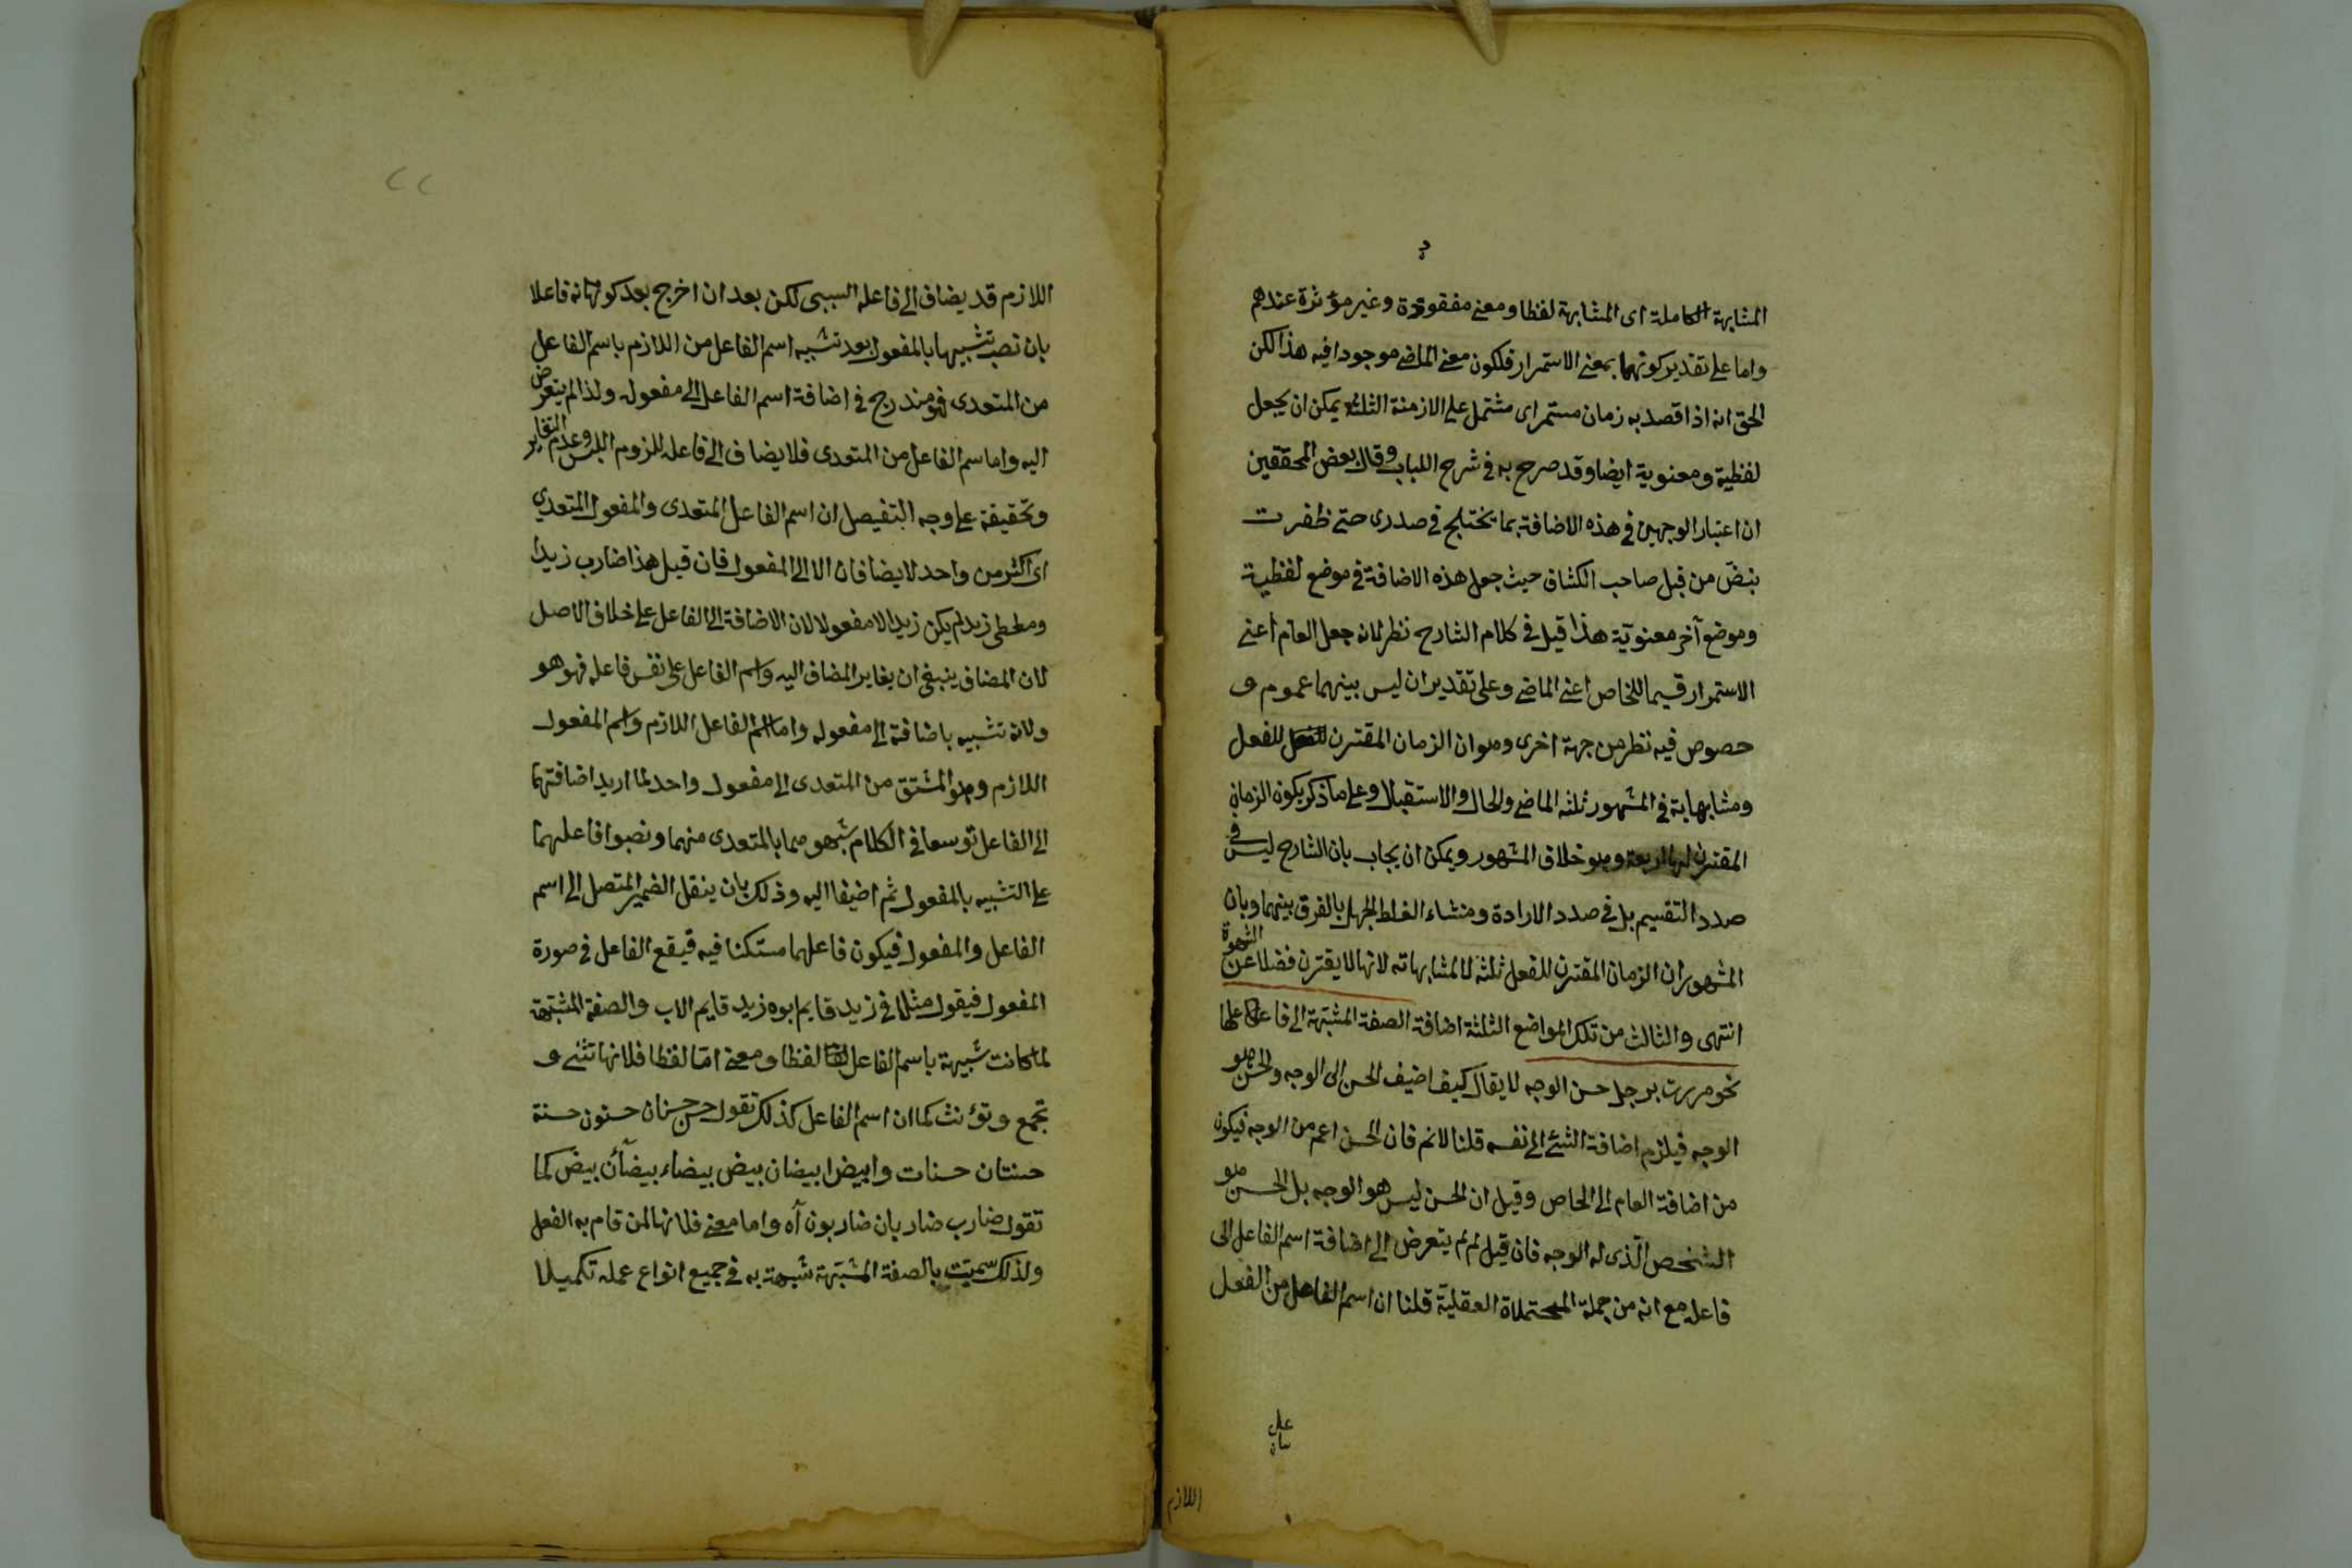 المشابهة الكاملة اى المشابهة لفظا ومعنى مفقودة وغير مؤثرة عندهم
واما على تقدير كونها بمعنى الاستمرار فلكون معنى الماضى موجودا فيه هذا لكن
الحق انه اذا قصد به زمان مستمر اى مشتمل على الازمنة الثلثة يمكن ان يجعل
لفظية ومعنوية ايضا وقد صرح به فى شرح اللباب وقال بعض المحققين
ان اعتبار الوجهين فى هذه الاضافة بما يختلج فى صدرى حتى ظفرت
بنص من قبل صاحب الكشاف حيث جعل هذه الاضافة فى موضع لفظية
وموضع آخر معنوية هذا قيل فى كلام الشارح نظر لانه جعل العام اعنى
الاستمرار قسيما للخاص اعنى الماضى وعلى تقدير ان ليس بينهما عموم و
خصوص فيه نظر من جهة اخرى وهو ان الزمان المقترن للفعل
ومشابهاته فى المشهور ثلثه الماضى والحال والاستقبال وعلى ما ذكر يكون الزمان
المقترن لها اربعة وهو خلاف المشهور ويمكن ان يجاب بان الشارح ليس فى
صدد التقسيم بل فى صدد الارادة ومنشاء الغلط الجهل بالفرق بينهما وبان
المشهور ان الزمان المقترن للفعل ثلثة لا لمشابهاته لانها لا يقترن فضلا عن الشهرة
انتهى والثالث من تلك المواضع الثلثة اضافة الصفة المشبهة الى فاعلها
نحو مررت برجل حسن الوجه لا يقال كيف اضيف الحسن الى الوجه والحسن هو
الوجه فيلزم اضافة الشئ الى نفسه قلنا لانم فان الحسن اعم من الوجه فيكون
من اضافة العام الى الخاص وقيل ان الحسن ليس هو الوجه بل الحسن هو
الشخص الذى له الوجه فان قيل لم لم يتعرض الى اضافة اسم الفاعل الى
فاعله مع انه من جملة المحتملاة العقلية قلنا ان اسم الفاعل من الفعل
اللازم
اللازم قد يضاف الى فاعله السببى لكن بعد ان اخرج بعد كونها فاعلا
بان نصب تشبيها بالمفعول بعد تشبيه اسم الفاعل من اللازم باسم الفاعل
من المتعدى فهو مندرج فى اضافة اسم الفاعل الى مفعوله ولذا لم يتعرض
اليه واما اسم الفاعل من المتعدى فلا يضاف الى فاعله للزوم اللبس وعدم التغاير
وتحقيقة على وجه التفيصل ان اسم الفاعل المتعدى والمفعول المتعدي
اى اكثر من واحد لا يضافان الا الى المفعول فان قيل هذا ضارب زيدا
ومعطى زيد لم يكن زيد الا مفعولا لان الاضافة الى الفاعل على خلاف الاصل
لان المضاف ينبغى ان يغاير المضاف اليه واسم الفاعل على نفس فاعله فهو هو
ولانه تشبيه باضافة الى مفعوله واما اسم الفاعل اللازم واسم المفعول
اللازم وهو المشتق من المتعدى الى مفعول واحد لما اريد اضافتهما
الى الفاعل توسعا فى الكلام شبهوهما بالمتعدى منهما ونصبوا فاعلهما
على التشبيه بالمفعول ثم اضيفا اليه وذلك بان ينقل الضمير المتصل الى اسم
الفاعل والمفعول فيكون فاعلهما مستكنا فيه فيقع الفاعل فى صورة
المفعول فيقول مثلا فى زيد قايم ابوه زيد قايم الاب والصفة المشبهة
لما كانت شبيهة باسم الفاعل لفظا ومعنى اما لفظا فلانها تثنى و
تجمع وتؤنث كما ان اسم الفاعل كذلك تقول حسن حسنان حسنون حسنة
حسنتان حسنات وابيض ابيضان بيض بيضاء بيضآن بيض كما
تقول ضارب ضاربان ضاربون آه واما معنى فلانها لمن قام به الفعل
ولذلك سميت بالصفة المشبهة شبهة به فى جميع انواع عمله تكميلا